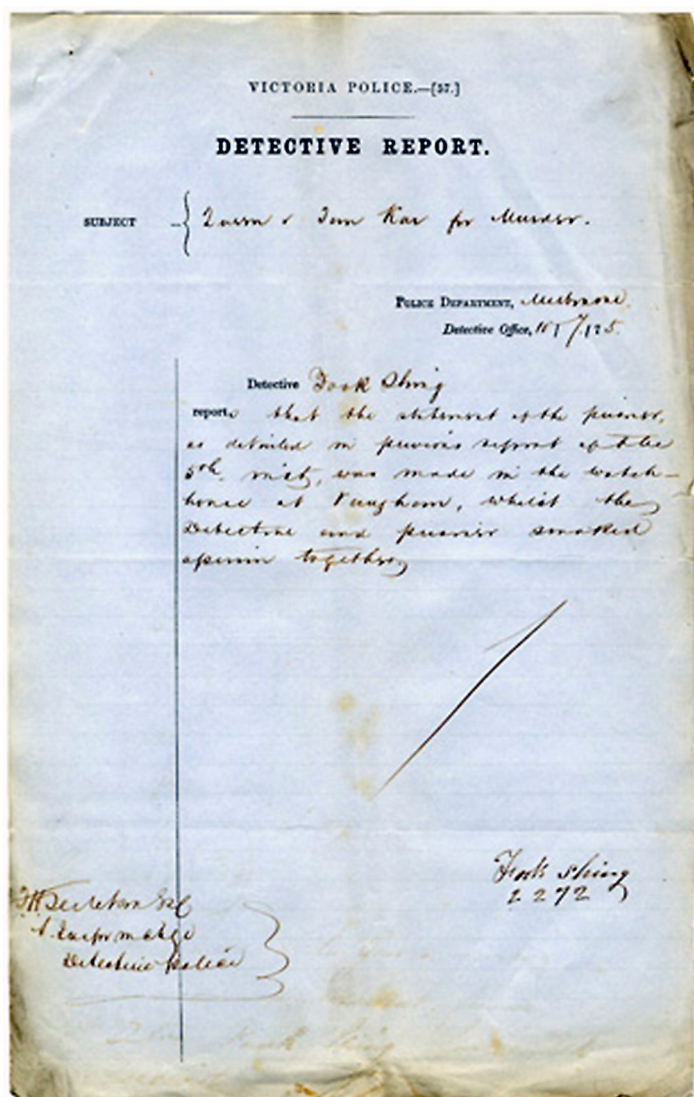 VICTORIA POLICE.—[57.]
DETECTIVE REPORT.
SUBJECT Queen v Kar for Murder.
POLICE DEPARTMENT, Melbourne.
Detective Office,
Detective Fook Shing
reports that the statement of the prisoner,
as detailed in previous report of the
5th inst, was made in the watch-
house at Vaughan, whilst the
Detective and prisoner smoked
opium together
Fook Shing
2272
Secretan Esq
Detective Police